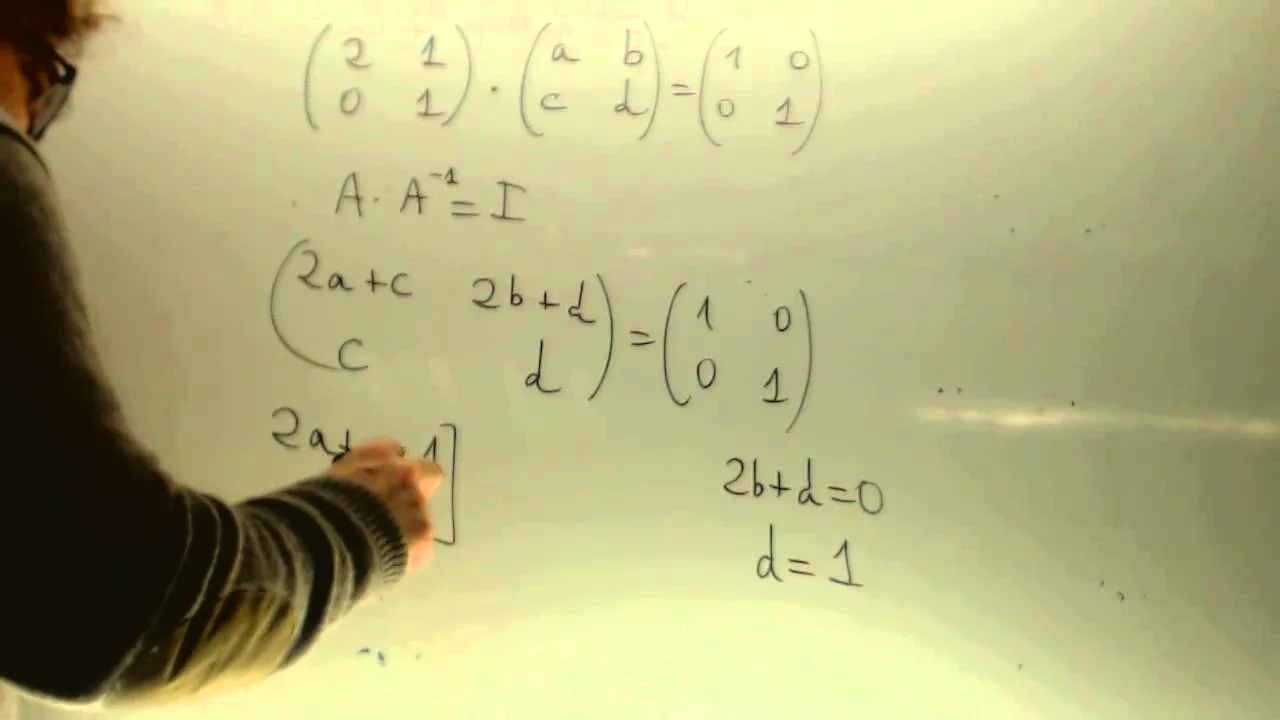 (2 1
0 1) · (a b
c d) = (1 0
0 1)
A · A⁻¹ = I
(2a+c 2b+d
c d) = (1 0
0 1)
2a+ 1]
2b+d=0
d=1